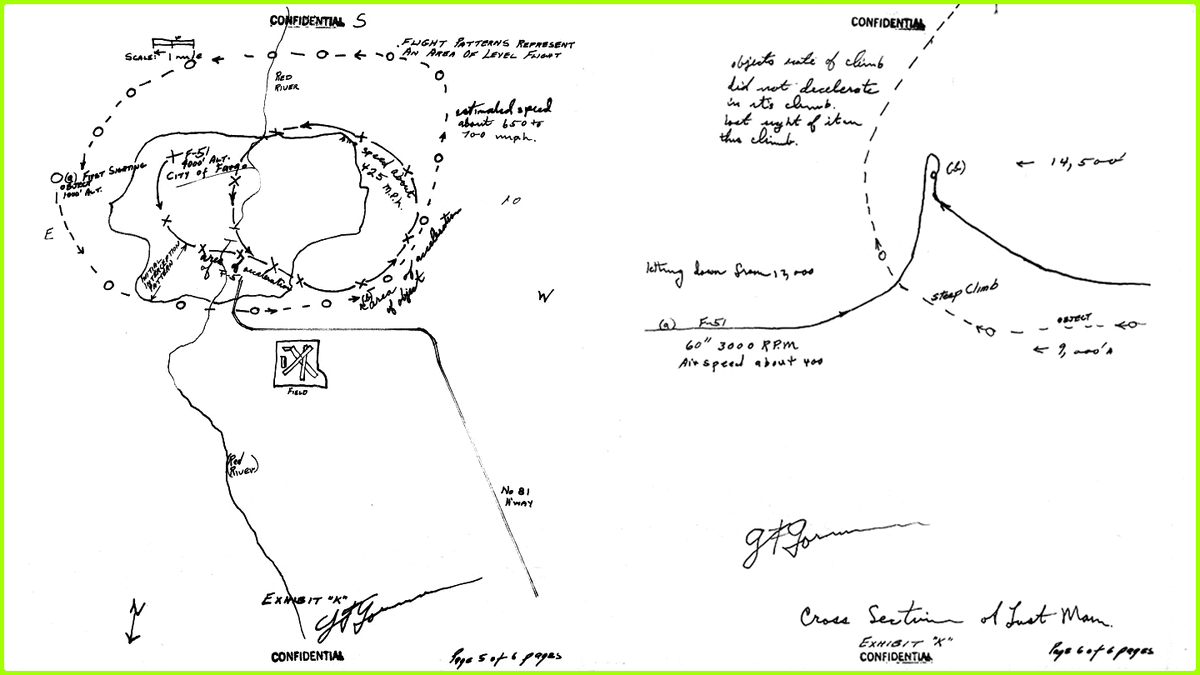 CONFIDENTIAL S
FLIGHT PATTERNS REPRESENT
AN AREA OF LEVEL FLIGHT
SCALE: 1 mile
RED
RIVER
estimated speed
about 650 to
700 mph.
(a) FIRST SIGHTING
OBJECT
1000' ALT.
F-51
4000' ALT.
CITY OF Fargo
Air speed about
425 M.P.h.
E
INITIAL
INTERCEPTION
PATTERN
area
of
F-51
acceleration
(b)
area of acceleration
of object
W
FIELD
(Red
River)
No 81
H'WAY
N
EXHIBIT "K"
GFGorman
CONFIDENTIAL
Page 5 of 6 pages
CONFIDENTIAL
objects rate of climb
did not decelerate
in its climb.
lost sight of it in
this climb.
(b)
← 14,500'
letting down from 13,000
steep climb
(a) F-51
60" 3000 RPM
Air speed about 400
OBJECT
← 9,000'
GFGorman
Cross Section of Last Man.
EXHIBIT "K"
CONFIDENTIAL
Page 6 of 6 pages